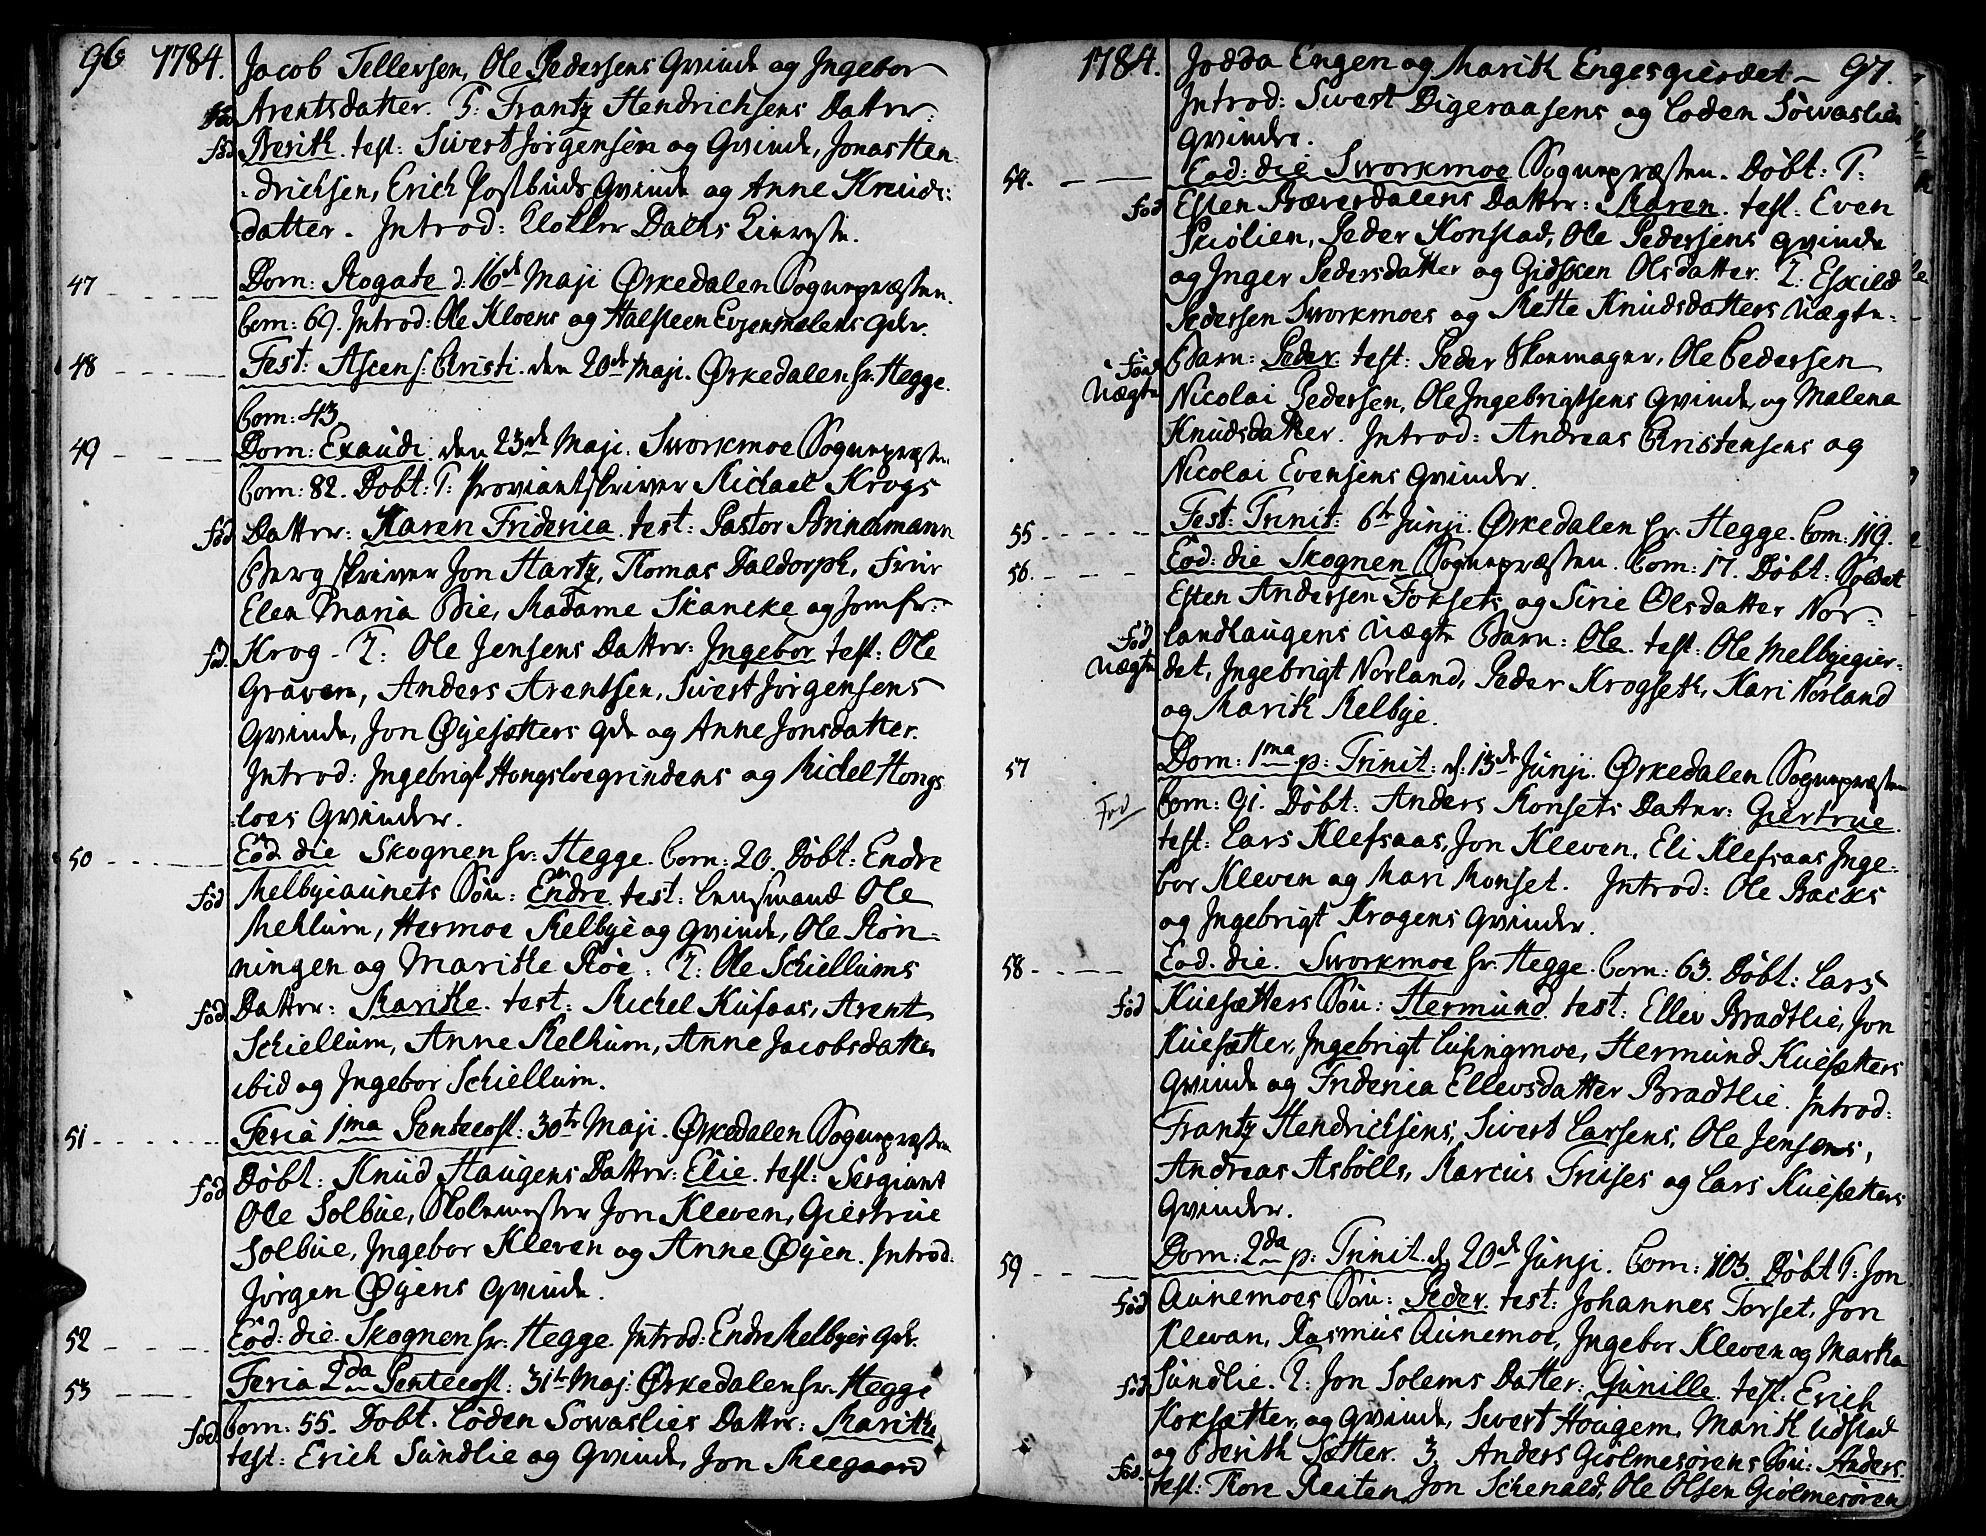 96 1784. Jacob Tellersen, Ole Pedersens Qvinde og Ingebor
Arentsdatter. T: Frantz Hendrichsens Datter:
fød Berith. test: Sivert Jörgensen og Qvinde, Jonas Hen-
-drichsen, Erich Postbuds Qvinde og Anne Knuds:
datter. Introd: Klokker Dahls Kiereste.
47 Dom: Rogate d: 16de Maji Ørkedalen Sognepræsten.
Com: 69. Introd: Ole Kloens og Halsteen Evjensmælens Qdr.
48 Fest: Ascens: Christi den 20de Maji. Ørkedalen hr. Hegge.
Com: 43.
49 Dom: Exaudi den 23de Maji. Sworkmoe Sognepræsten
Com: 82. Døbt: T: Proviantskriver Michael Krogs
fød Datter: Karen Friderica. test: Pastor Brinckmann
Bergskriver Jon Hartz, Thomas Daldorph, Frue
Elen Maria Bie, Madame Skancke og Jomfr:
fød Krog - 2: Ole Jensens Datter: Ingebor test: Ole
Graven, Anders Arentsen, Sivert Jörgensens
Qvinde, Jon Øyesætters Qde og Anne Jonsdatter.
Introd: Ingebrigt Hongsloegrindens og Michel Hongs
loes Qvinder.
50 Eod. die Skognen hr: Hegge. Com: 20. Døbt: Endre
fød Melbyeaunets Søn: Endre test: Lensmand Ole
Mehlum, Hermoe Melbye og Qvinde, Ole Rön-
ningen og Marithe Röe. 2: Ole Schiellums
fød Datter: Marithe. test: Michel Kufaas, Arent
Schiellum, Anne Melhum, Anne Jacobsdatter
ibid og Ingebor Schiellum.
51 Feria 1ma Pentecost: 30te Maji. Ørkedalen Sognepræsten
fød Døbt: Knud Haugens Datter: Elie. test: Sergiant
Ole Solbue, Skolemester Jon Kleven, Giertrue
Solbue, Ingebor Kleven og Anne Øyen. Introd:
Jörgen Øyens Qvinde.
52 Eod: die. Skognen hr. Hegge. Introd: Endre Melbyes Qde.
53 Feria 2da Pentecost: 31te Maj: Ørkedalen hr. Hegge
fød. Com: 55. Døbt. Löden Sowaslies Datter: Marithe
test: Erich Sundlie og Qvinde, Jon Meegaard
1784. Jodda Engen og Marith Engesgierdet - 97.
Introd: Sivert Digeraasens og Loden Sowaslies
Qvinder.
54. Eod: die Sworkmoe Sognepræsten. Døbt: T:
fød Esten Bæverdalens Datter: Maren. test: Even
Skiølien, Peder Konstad, Ole Pedersens Qvinde
og Inger Pedersdatter og Gidsken Olsdatter. 2: Eskild
Pedersen Sworkmoes og Mette Knudsdatters Uægte
fød Uægte Barn: Peder test: Peder Skoemager, Ole Pedersen
Nicolai Pedersen, Ole Ingebrigtsens Qvinde og Malena
Knudsdatter. Introd: Andreas Christensens og
Nicolai Evensens Qvinder.
55 Fest: Trinit: 6te Junji. Ørkedalen hr. Hegge. Com: 119.
56. Eod: die Skognen Sognepræsten. Com: 17. Døbt: Soldat
Esten Andersen Foksets og Sirie Olsdatter Nor-
fød Uægte landlaugens Uægte Barn: Ole. test: Ole Melbyegier-
det, Ingebrigt Norland, Peder Krogseth, Kari Norland
og Marith Melbye.
57 Dom: 1ma p: Trinit: d: 13de Junji. Ørkedalen Sognepræsten
Fød Com: 91. Døbt: Anders Monsets Datter: Giertrue.
test: Lars Klefsaas, Jon Kleven, Eli Klefsaas Inge-
bor Kleven og Mari Monset. Introd: Ole Backs
og Ingebrigt Krogens Qvinder.
58 Eod. die. Sworkmoe hr: Hegge. Com: 63. Døbt: Lars
fød Kuesætters Søn: Hermund. test: Ellev Bradtlie, Jon
Kuesætter, Ingebrigt Lusingmoe, Hermund Kuesætters
Qvinde og Friderica Ellevsdatter Bradtlie. Introd:
Frantz Hendrichsens, Sivert Larsens, Ole Jensens,
Andreas Asbölls, Marcus Truses og Lars Kuesætters
Qvinder.
59 Dom: 2da p: Trinit. d. 20de Junji. Com: 103. Døbt T: Jon
fød Aunemoes Søn: Peder. test: Johannes Forset, Jon
Klevan, Rasmus Aunemoe, Ingebor Kleven og Martha
fød Sundlie. 2: Jon Solems Datter: Gunille. test: Erich
Koksætter og Qvinde, Sivert Hougen, Marith Udstad
fød. og Berith Sætter. 3. Anders Giølmesørens Søn: Anders.
test: Tore Reiten, Jon Schenald, Ole Olsen Giolmesøren